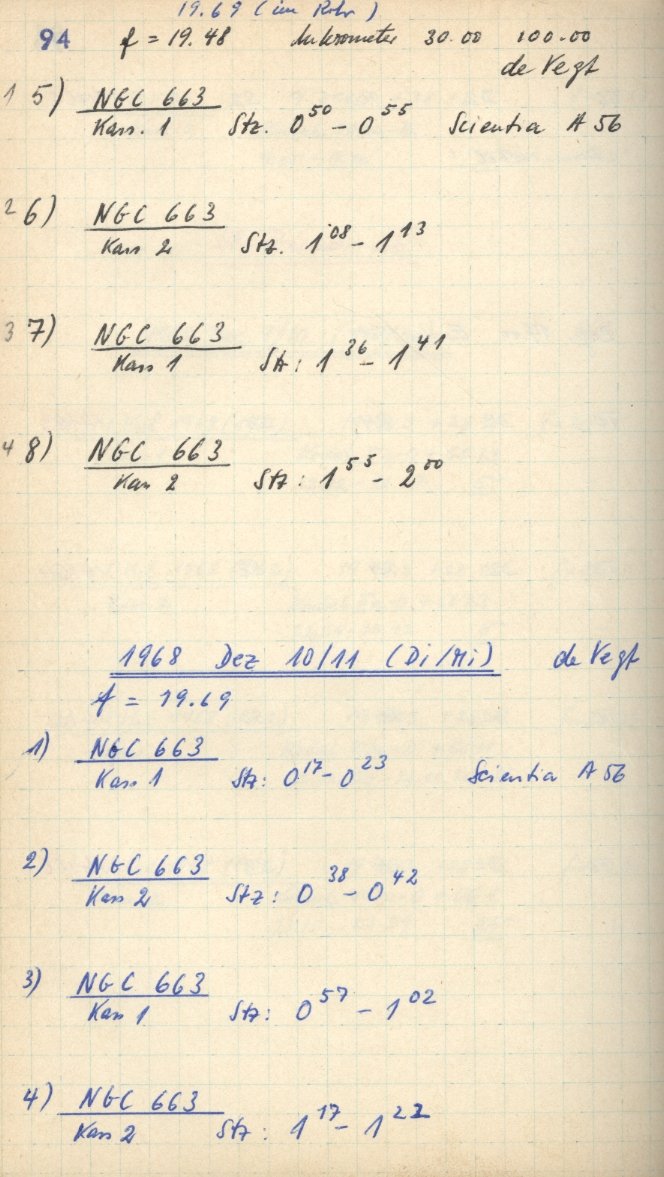 19.69 (im Rohr)
94 f = 19.48 Mikrometer 30.00 100.00
de Vegt
1 5) NGC 663
Kass. 1 Stz. 0 50 - 0 55 Scientia A 56
2 6) NGC 663
Kass 2 Stz. 1 08 - 1 13
3 7) NGC 663
Kass 1 Stz: 1 36 - 1 41
4 8) NGC 663
Kass 2 Stz: 1 55 - 2 00
1968 Dez 10/11 (Di/Mi) de Vegt
f = 19.69
1) NGC 663
Kass 1 Stz: 0 17 - 0 23 Scientia A 56
2) NGC 663
Kass 2 Stz: 0 38 - 0 42
3) NGC 663
Kass 1 Stz: 0 57 - 1 02
4) NGC 663
Kass 2 Stz: 1 17 - 1 22